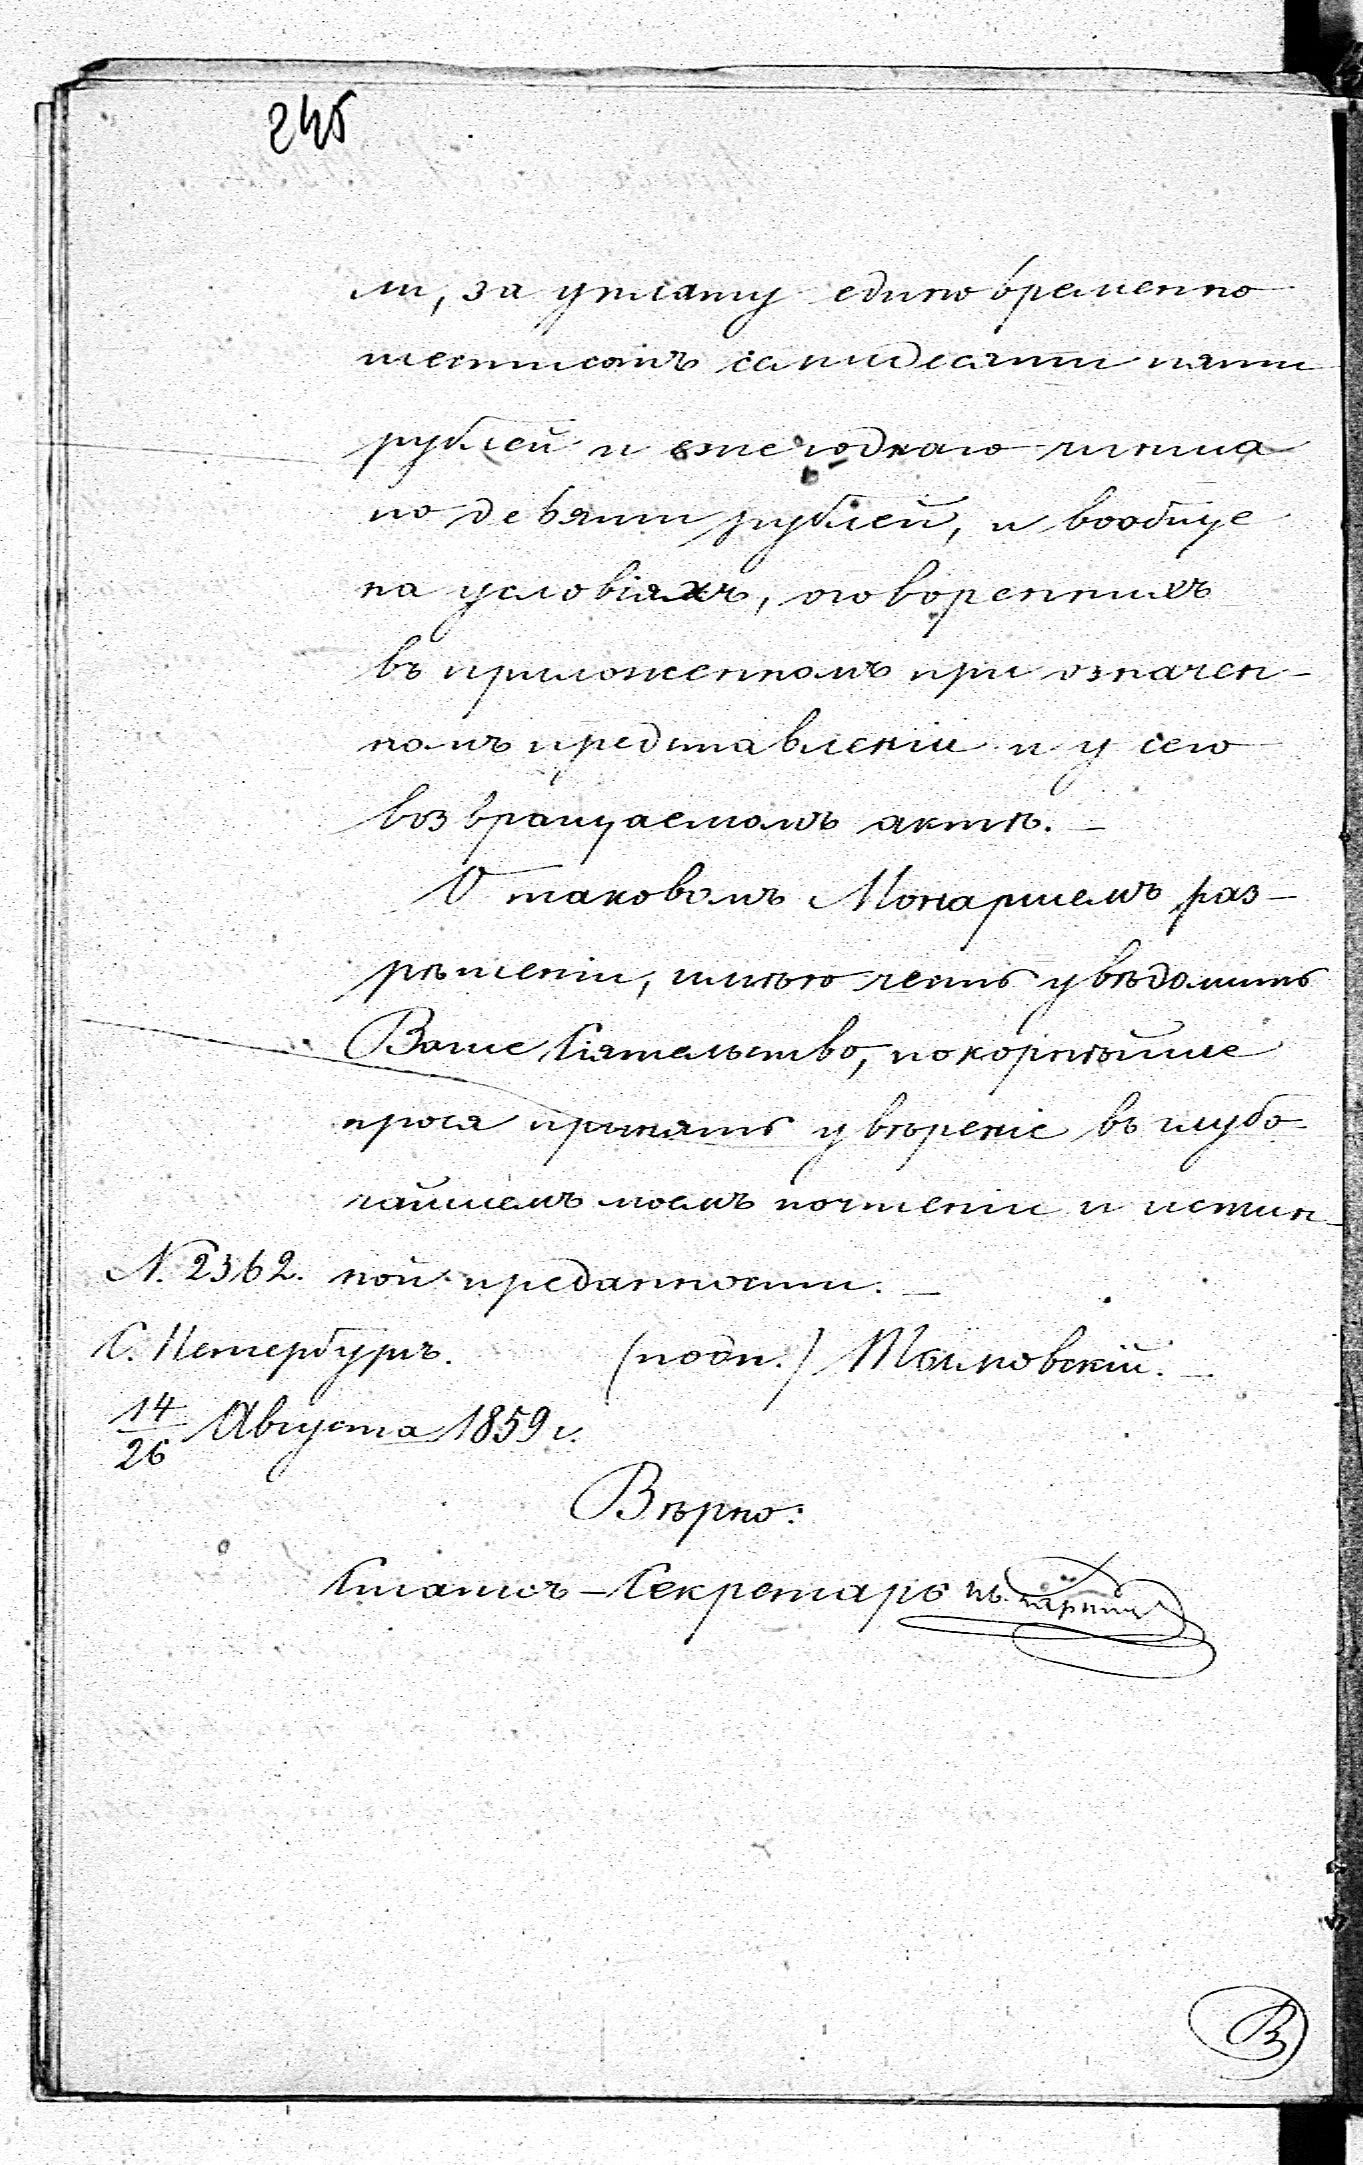 245
ли, за уплату единовременно
шестисотъ семидесяти пяти
рублей и ежегоднаго чинша
по девяти рублей, и вообще
на условіяхъ, оговоренныхъ
въ приложенномъ при означен-
номъ представленіи и у сего
возвращаемомъ актѣ. —
О таковомъ Монаршемъ раз-
рѣшеніи, имѣю честь увѣдомить
Ваше Сіятельство, покорнѣйше
прося принять увѣреніе въ глубо
чайшемъ моемъ почтеніи и истин-
N. 2362. ной преданности. —
С. Петербургъ. (подп.) Тымовскій. —
14/26 Августа 1859 г.
Вѣрно:
Статсъ-Секретарь
В